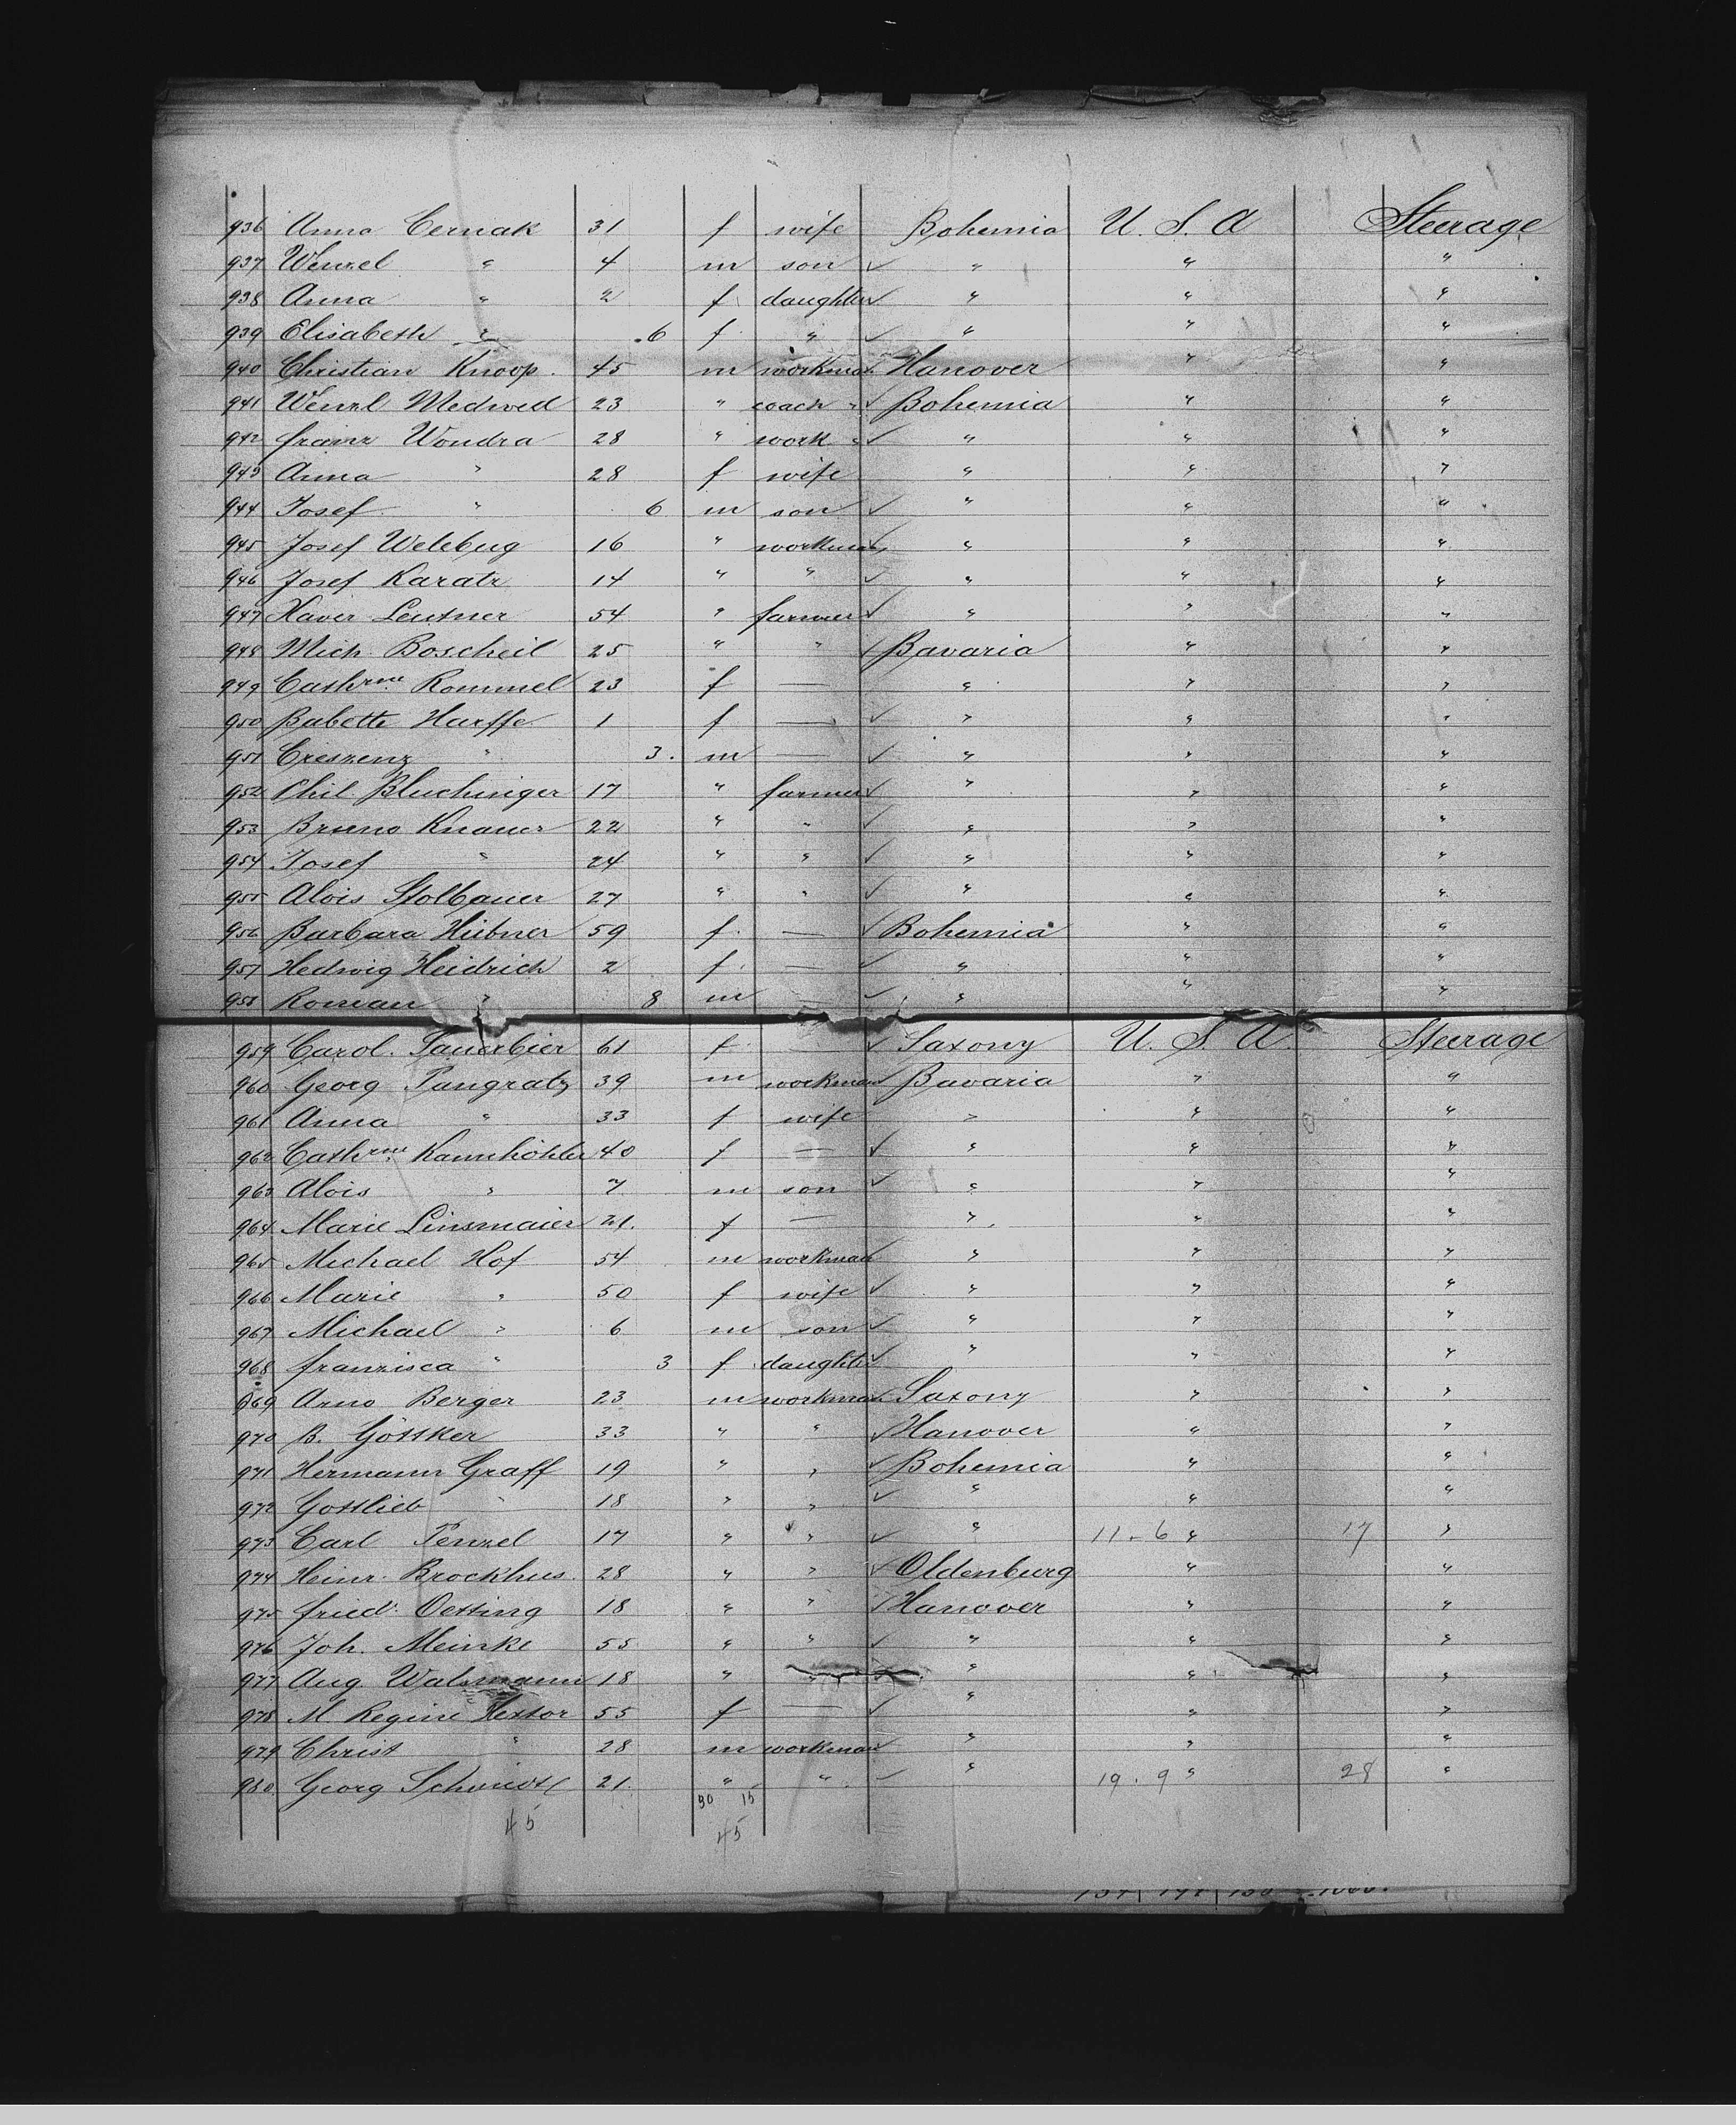 936 Anna Cernak 31 f wife Bohemia U. S. A Steerage
937 Wenzel " 4 m son ✓ " " "
938 Anna " 2 f daughter ✓ " " "
939 Elisabeth " 6 f " ✓ " " "
940 Christian Knoop. 45 m workman Hanover " "
941 Wenzl Medwed 23 " coach " ✓ Bohemia " "
942 franz Wondra 28 " work " ✓ " " "
943 Anna " 28 f wife " " "
944 Josef " 6 m son ✓ " " "
945 Josef Weleburg 16 " workman ✓ " " "
946 Josef Karatz 14 " " ✓ " " "
947 Xaver Leutner 54 " farmer ✓ " " "
948 Mich. Boscheil 25 " " ✓ Bavaria " "
949 Cathrne Rommel 23 f — " " "
950 Babette Harffe 1 f — ✓ " " "
951 Creszenz " 3. m — ✓ " " "
952 Phil. Bluchinger 17 " farmer ✓ " " "
953 Bruno Knauer 22 " " ✓ " " "
954 Josef " 24 " " ✓ " " "
955 Alois Stolbauer 27 " " ✓ " " "
956 Barbara Hübner 59 f. — ✓ Bohemia " "
957 Hedwig Heidrich 2 f. — ✓ " " "
958 Roman " 8 m — ✓ " " "
959 Carol. Sauerbier 61 f — ✓ Saxony U. S. A. Steerage
960 Georg Pangratz 39 m workman Bavaria " "
961 Anna " 33 f wife " " "
962 Cathrne Kannhöhler 40 f — ✓ " " "
963 Alois " 7 m son ✓ " " "
964 Marie Linsmaier 21. f — " " "
965 Michael Hof 54 m workman " " "
966 Marie " 50 f wife ✓ " " "
967 Michael " 6 m son ✓ " " "
968 franzisca " 3 f daughter ✓ " " "
969 Arno Berger 23 m workman Saxony " "
970 B. Göttker 33 " " ✓ Hanover " "
971 Hermann Graff 19 " " ✓ Bohemia " "
972 Gottlieb " 18 " " ✓ " " "
973 Carl Penzel 17 " " ✓ " 11-6 " 17 "
974 Heinr. Brockhus. 28 " " ✓ Oldenburg " "
975 fried. Oetting 18 " " ✓ Hanover " "
976 Joh. Meinke 55 " " ✓ " " "
977 Aug. Walsmann 18 " " ✓ " " "
978 M. Regine Hextor 55 f — ✓ " " "
979 Christ " 28 m workman " " "
980. Georg Schmidt 21. " " ✓ " 19.9 " 28 "
30 15
45 45